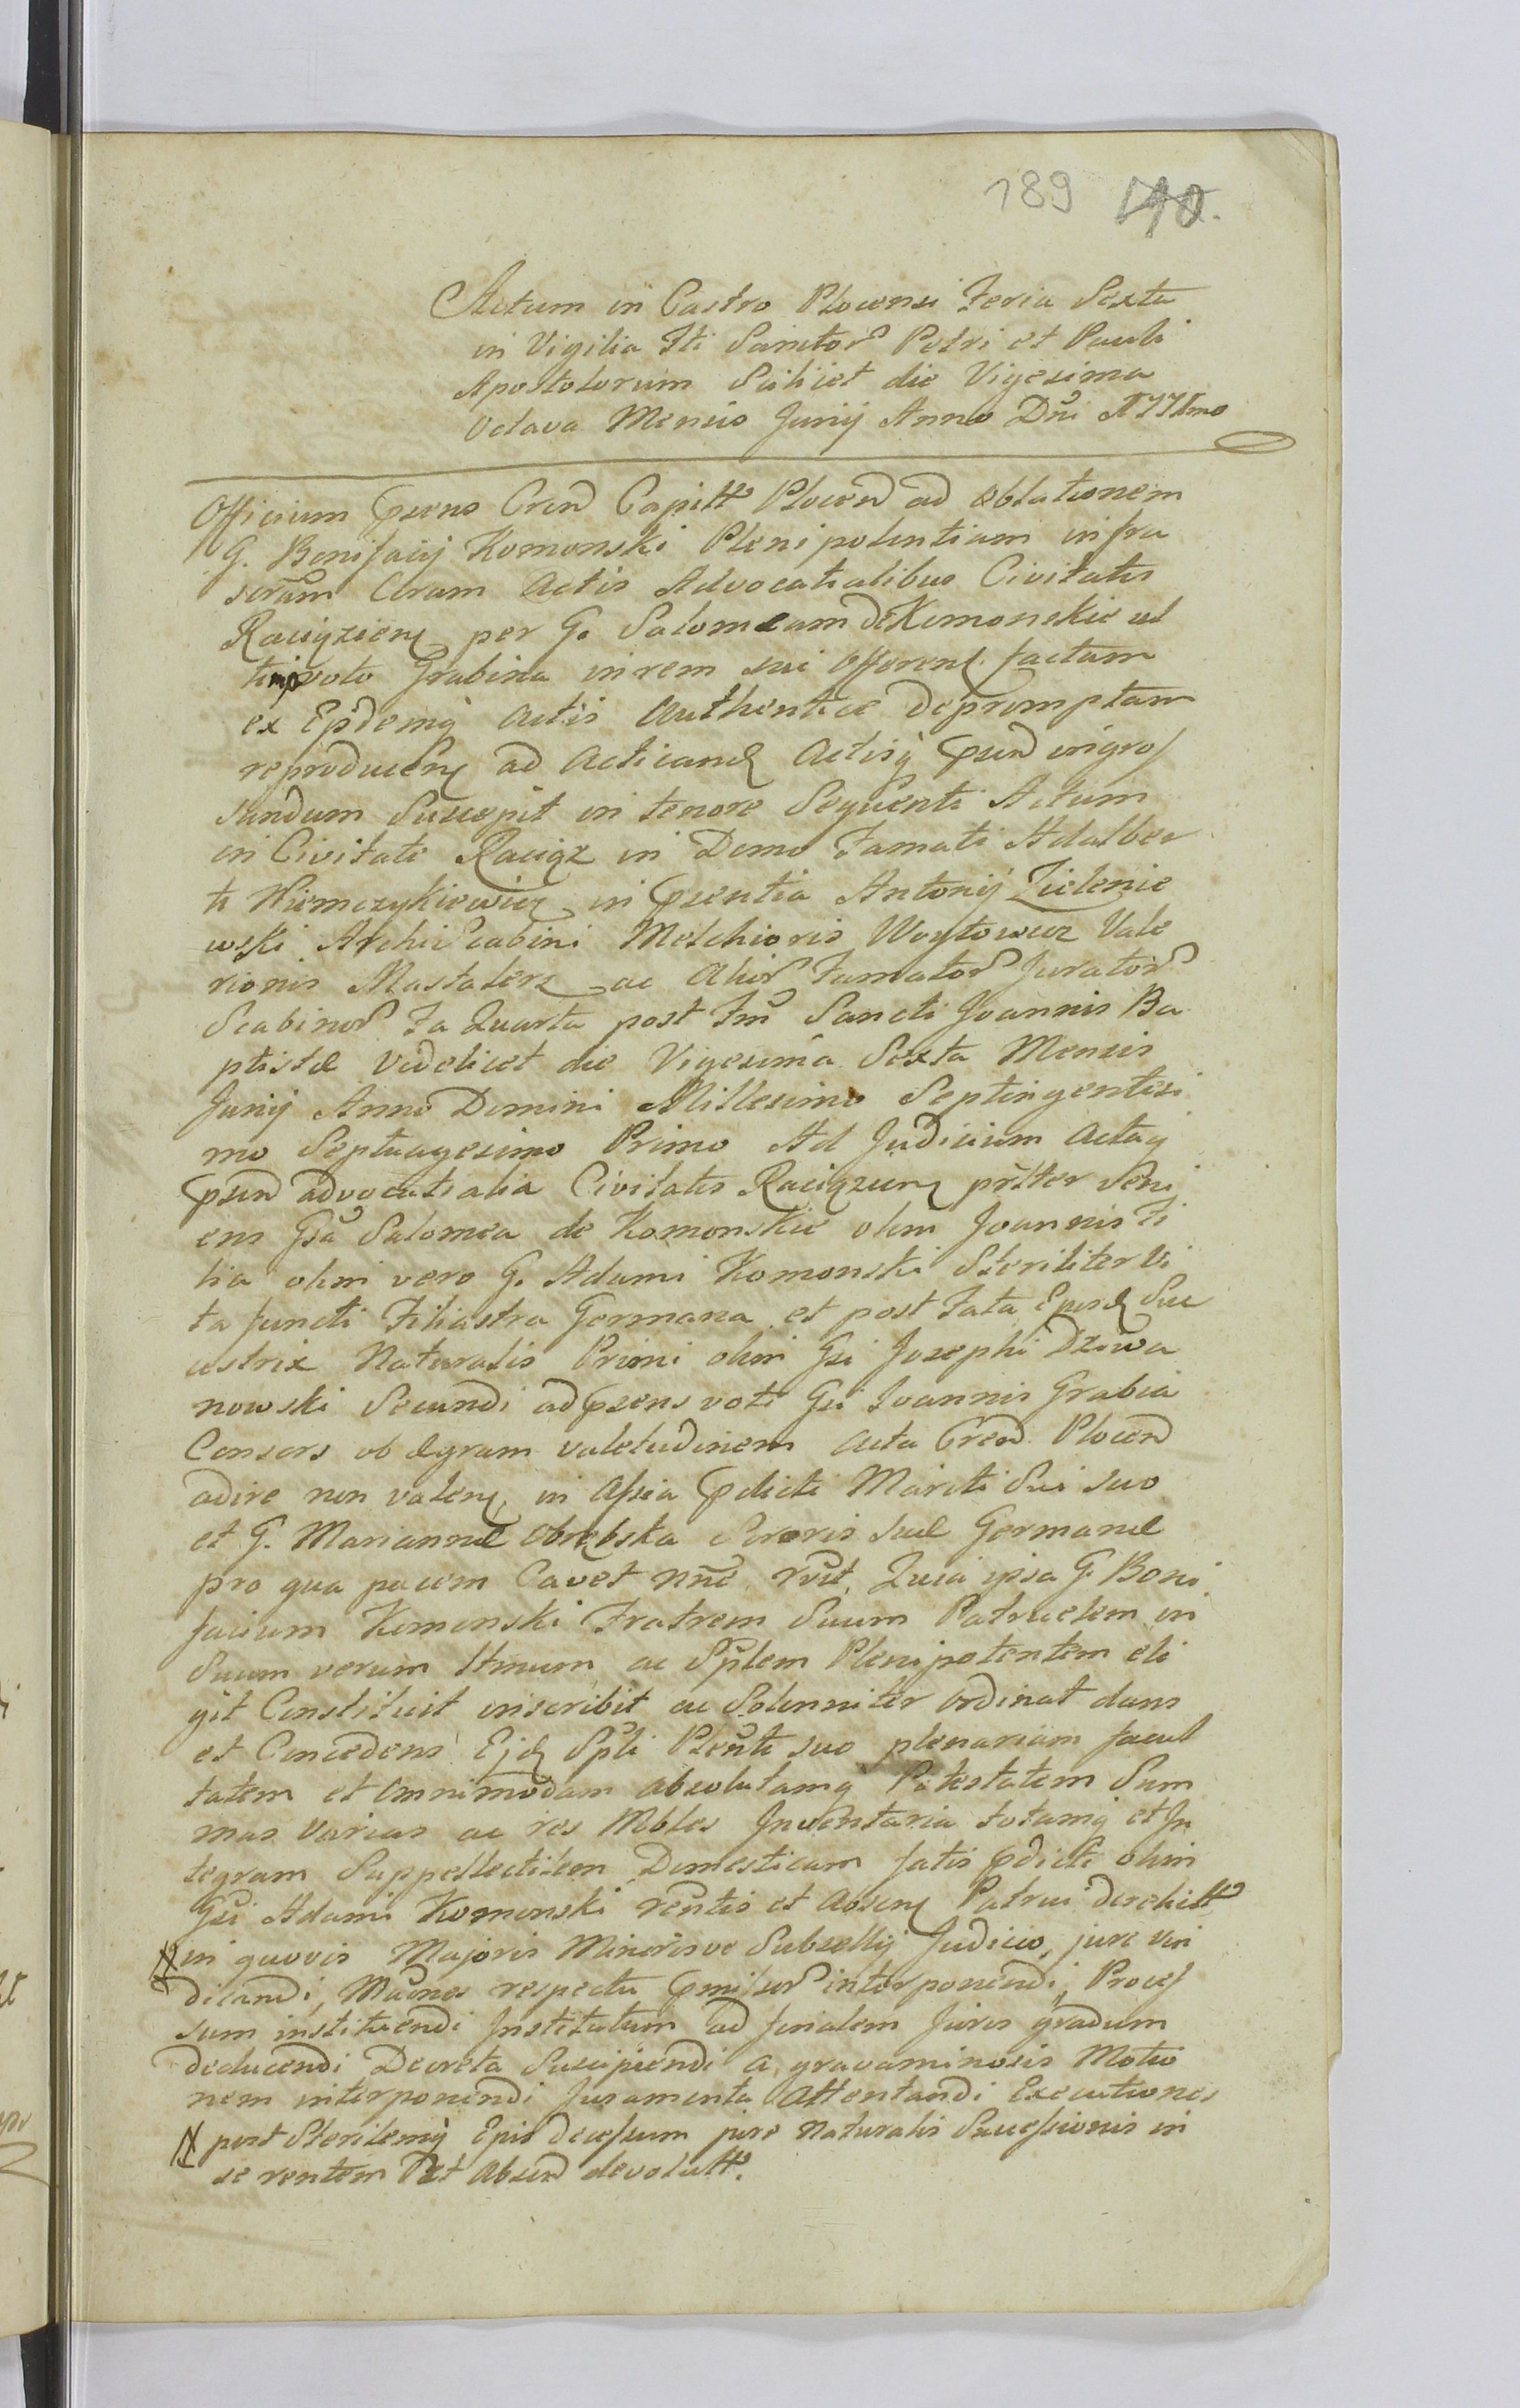 189 190.
Actum in Castro Plocensi Feria Sexta
in Vigilia Fti Sanctor Petri et Pauli
Apostolorum Scilicet die Vigesima
Octava Mensis Junij Anno Dni
Officium psens Cren Capitt Plocen ad oblationem
G. Bonifacij Komonski Plenipotentiam infra
scram Coram Actis Advocatialibus Civitatis
Raciąziens per G. Salomeam de Komonskie ul
timo voto Grabina in rem sui Offerens factam
ex Eisdemq actis Authentice depromptam
reproducens ad Acticand Actisq psen ingros
sandum Suscepit in tenore Sequenti Actum
in Civitate Raciąz in Domo Famati Adalber
ti Niemczykiewicz in psentia Antonij Zielenie
wski ArchiScabini Melchioris Woytowicz Vale
rionis Mastalerz ac Alior Famator Jurator
Scabinor Fa Quarta post Fm Sancti Joannis Ba
ptistæ Videlicet die Vigesima Sexta Mensis
Junij Anno Domini Millesimo Septingentesi
mo Septuagesimo Primo Ad Judicium Actaq
psen advocatialia Civitatis Raciąziens prster Veni
ens Gsa Salomea de Komonskie olim Joannis Fi
lia olim vero G. Adami Komonski Steriliter Vi
ta functi Filiastra Germana et post Fata Ejusd Suc
cestrix Naturalis Primi olim Gsi Josephi Dziwa
nowski Secundi ad psens voti Gsi Joannis Grabia
Consors ob ægram valetudinem Acta Cren Plocen
adire non valens, in Assia pdicti Mariti Sui suo
et G. Mariannæ Obrębska Sororis suæ Germanæ
pro qua pacem Cavet nne rvit, Quia ipsa G. Boni
facium Komonski Fratrem Suum Patruelem in
Suum verum ltmum ac Splem Plenipotentem eli
git Constituit inscribit ac Solenniter ordinat dans
et Concedens Ejd Spli Plenti suo plenariam facul
tatem et Omnimodam absolutamq Potestatem Sum
mas Varias ac res Mbles Inventaria totamq et In
tegram Suppellectilem Domesticam fatis pdicti olim
Gsi Adami Komonski rentis et Absens Patrui derelictt
in quovis Majoris Minorisve Subsellij Judicio, jure vin
dicandi, Mucnes respectu pmissor interponendi, Proces
sum instituendi Institutum ad finalem Juris gradum
deducendi Decreta Suscipiendi a gravaminosis Motio
nem interponendi Juramenta Attentandi Executiones
post Sterilemq Epis decessum jure Naturalis Successionis in
se rentem et Absen devolutt.